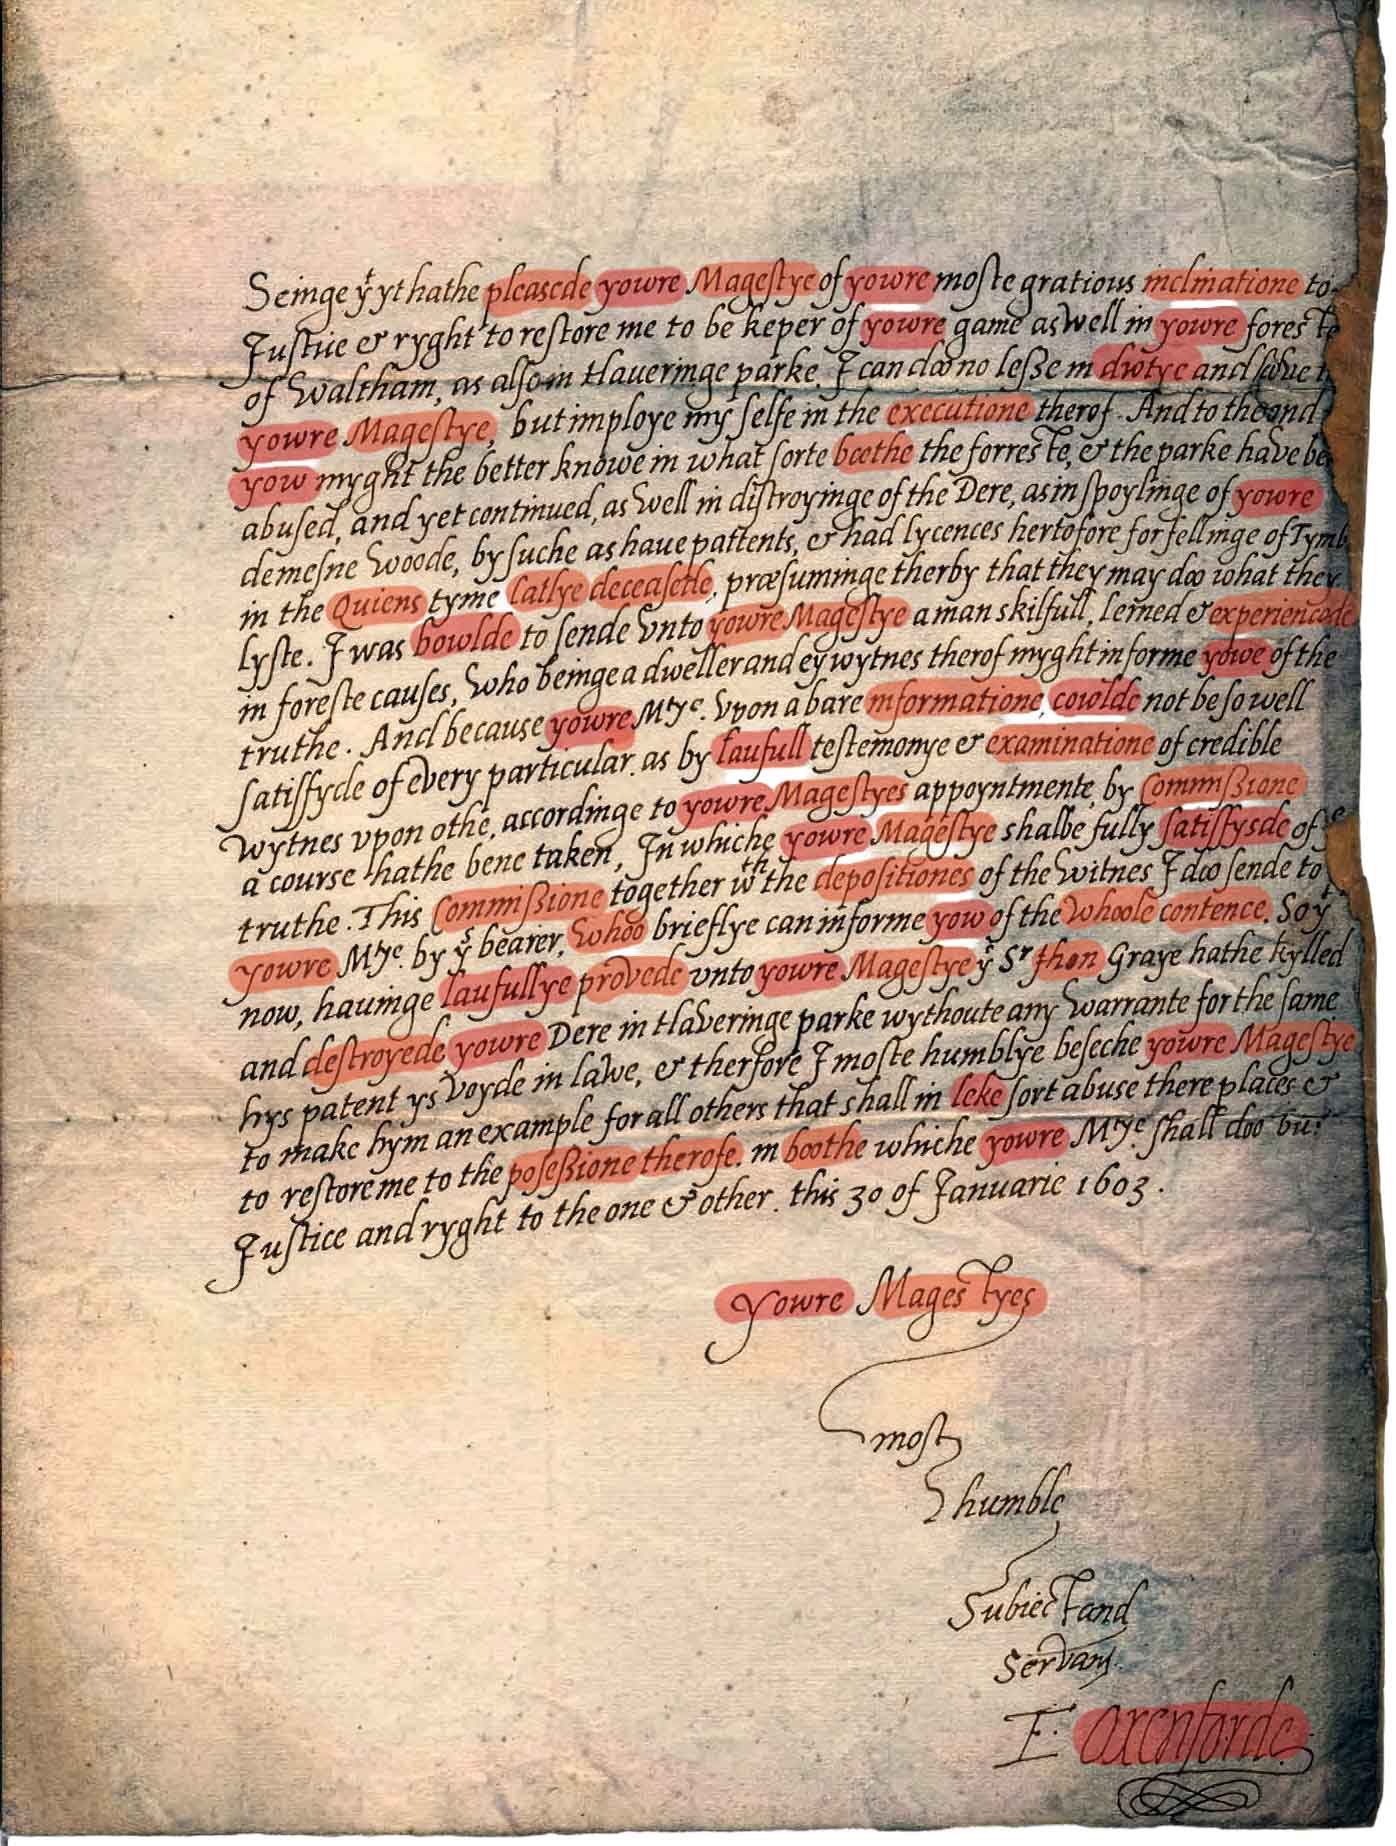 Seinge yt yt hathe pleasede yowre Magestye of yowre moste gratious inclinatione to
Justice & ryght to restore me to be keper of yowre game as well in yowre foreste
of Waltham, as also in Haveringe parke. I can doo no lesse in dwtye and love t
yowre Magestye, but imploye my selfe in the executione therof. And to the end
yow myght the better knowe in what sorte boethe the forreste, & the parke have be
abused, and yet continued, as well in distroyinge of the Dere, as in spoylinge of yowre
demesne Woode, by suche as haue pattents, & had lycences hertofore for fellinge of Tymb
in the Quiens tyme latlye deceasede, præsuminge therby that they may doo what they
lyste. I was bowlde to sende vnto yowre Magestye a man skilfull, lerned & experiencede
in foreste causes, who beinge a dweller and ey wytnes therof myght informe yowe of the
truthe. And because yowre Mtye. vpon a bare informatione, cowlde not be so well
satisfyde of every particular, as by laufull testemonye & examinatione of credible
wytnes vpon othe, accordinge to yowre Magestyes appoyntmente, by Commissione
a course hathe bene taken, In whiche yowre Magestye shalbe fully satisfysde of ye
truthe. This Commissione together wth the depositiones of the witnes I doo sende to
yowre Mtye. by ys bearer, whoo brieflye can informe yow of the whoole contence. So yt
now, havinge laufullye provede vnto yowre Magestye yt Sr Jhon Graye hathe kylled
and destroyede yowre Dere in Haveringe parke wythoute any warrante for the same
hys patent ys voyde in lawe, & therfore I moste humblye beseche yowre Magestye
to make hym an example for all others that shall in leke sort abuse there places &
to restore me to the posessione therofe. in boothe whiche yowre Mtye. shall doo but
Justice and ryght to the one & other. this 30 of Januarie 1603.
Yowre Magestyes
most
humble
Subiect and
Servant
E. Oxenforde